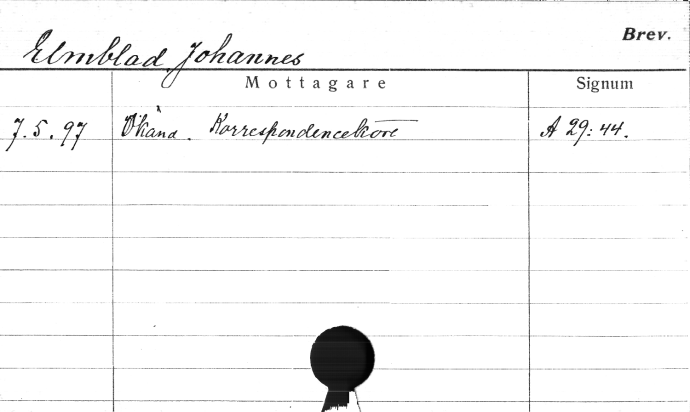 Brev.
Elmblad Johannes
Mottagare Signum
7.5.97 Okänd. A 29:44.